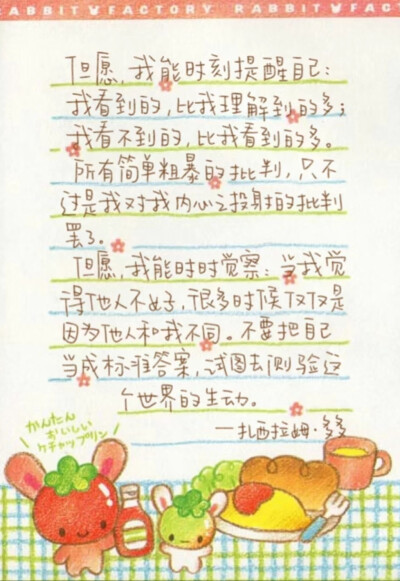 RABBIT FACTORY RABBIT FAC
但愿,我能时刻提醒自己:
我看到的,比我理解到的多;
我看不到的,比我看到的多。
所有简单粗暴的批判,只不
过是我对我内心之投射的批判
罢了。
但愿,我能时时觉察:当我觉
得他人不好,很多时候仅仅是
因为他人和我不同。不要把自己
当成标准答案,试图去测验这
个世界的生动。
—扎西拉姆·多多
かんたん
おいしい
ケチャップリン